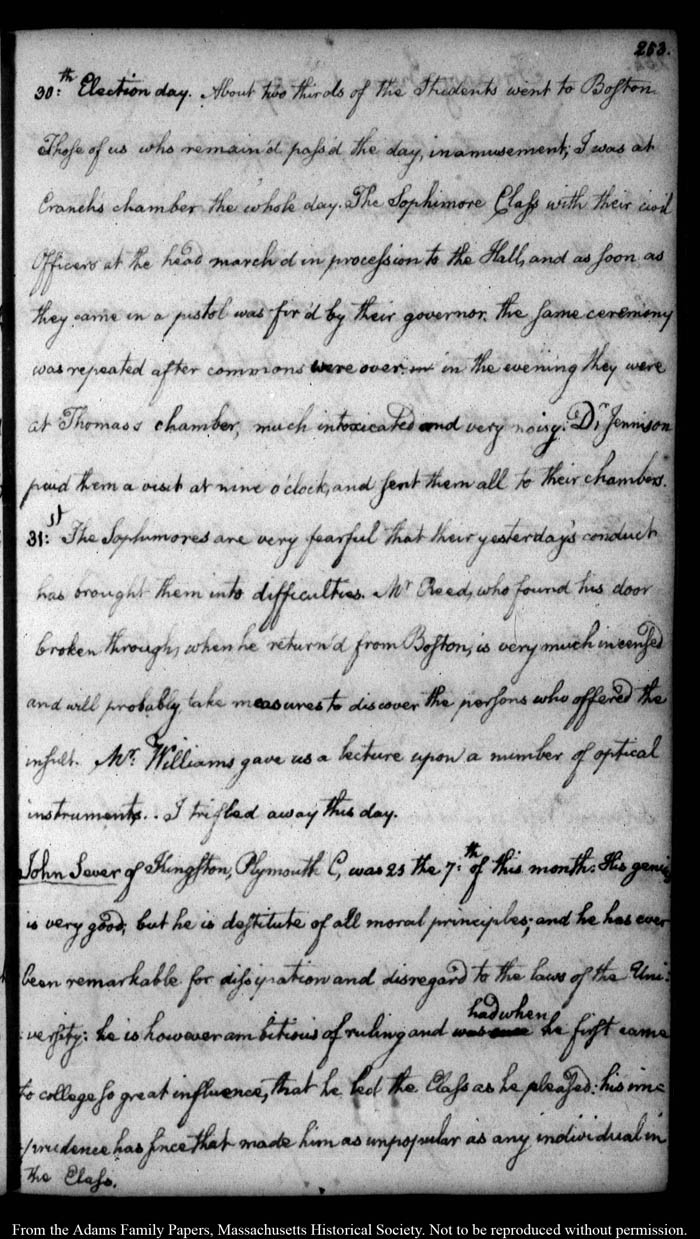 253.
30:th Election day. About two thirds of the Students went to Boſton.
Thoſe of us who remain'd paſs'd the day, in amusement; I was at
Cranch's chamber the whole day. The Sophimore Claſs with their civil
Officers at the head march'd in proceſsion to the Hall, and as ſoon as
they came in a pistol was fir'd by their governor. the ſame ceremony
was repeated after commons were over. in in the evening they were
at Thomas's chamber, much intoxicated and very noisy. Dr. Jennison
paid them a visit at nine o'clock, and ſent them all to their chambers.
31:st The Sophimores are very fearful that their yesterday's conduct
has brought them into difficulties. Mr. Reed, who found his door
broken through, when he return'd from Boſton, is very much incenſed
and will probably, take measures to discover the perſons who offered the
inſult. Mr. Williams gave us a lecture upon a number of optical
instruments.. I trifled away this day.
John Sever of Kingſton, Plymouth C, was 21 the 7:th of this month. His genius
is very good; but he is deſtitute of all moral principles; and he has ever
been remarkable for diſsipation and disregard to the laws of the Uni:
:verſity: he is however ambitious of ruling and had when he firſt came
to college ſo great influence, that he led the Claſs as he pleaſed: his im=
=prudence has ſince that made him as unpopular as any individual in
the Claſs.
From the Adams Family Papers, Massachusetts Historical Society. Not to be reproduced without permission.